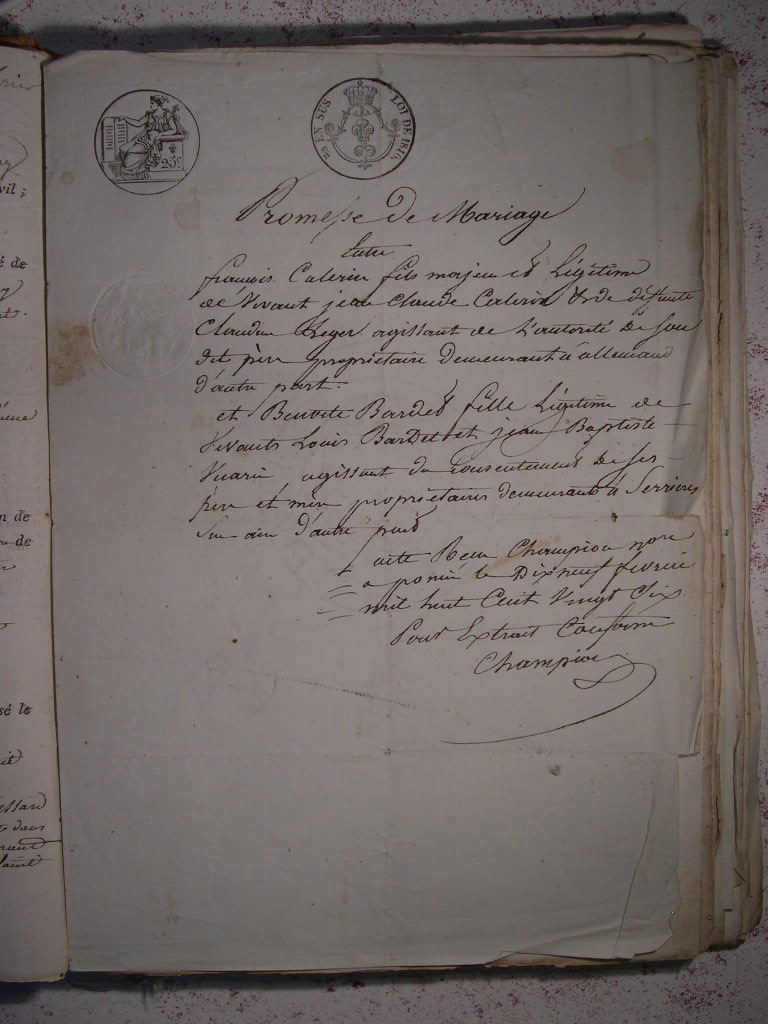 25c
EN SUS
LOI DE 1816.
Promesse de Mariage
Entre
françois Calerin fils majeur et Légitime
de Vivant jean Claude Calerin & de défunte
Claudine Leger agissant de L'autorité de son
dit père propriétaire Demeurant à allemand
d'autre part
et Benoite Bardet fille Légitime de
Vivants Louis Bardet et jean Baptiste
Vuarin agissant du Consentement De ses
père et mère propriétaires demeurants à Serrieres
Sur ain d'autre part
acte Recu Champion nore
a poncin le Dix neuf fevrier
mil huit Cent Vingt Six
Pour Extrait Conforme
Champion
vil ;
é de
n de
de
sé le
dans